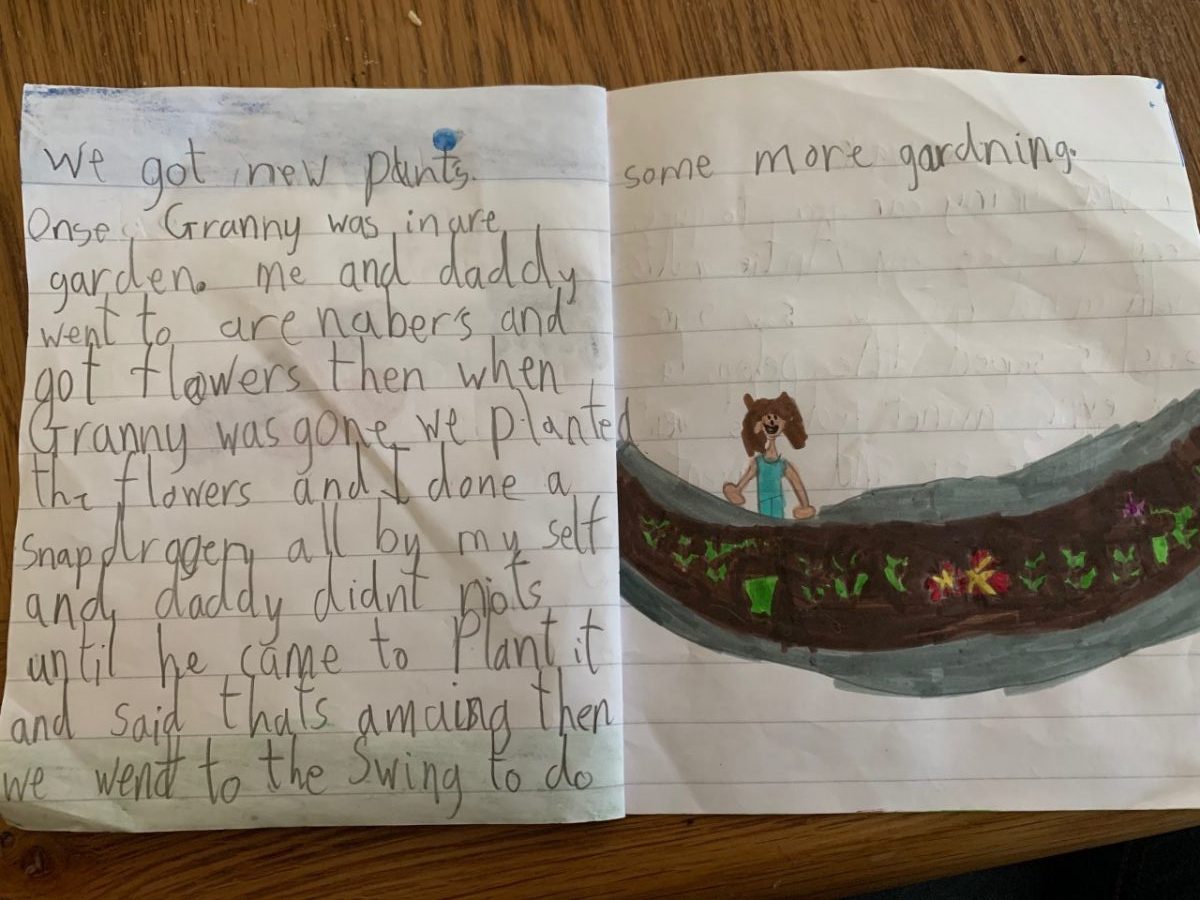 We got new plants.
Onse Granny was in are
garden. me and daddy
went to are nabers and
got flowers then when
Granny was gone we planted
the flowers and I done a
snapdrggen all by my self
and daddy didnt
until he came to Plant it
and said thats amaing then
we went to the Swing to do
some more gardning.